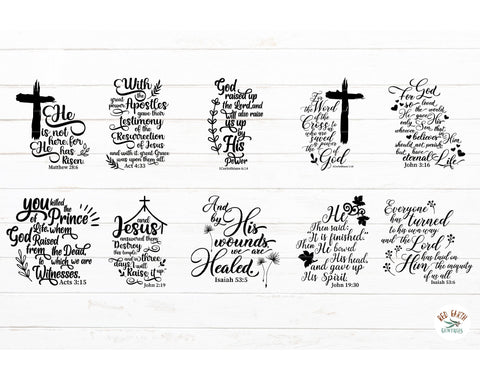 He
is not
here, for
He has
Risen.
Matthew 28:6
With
great power the
Apostles
gave their
testimony
of the
Resurrection
of Jesus
and with it, great Grace
was upon them all.
Act 4:33
God
raised up
the Lord, and
will also raise
us up
by
His
power
1Corinthians 6:14
For
the Word
of the
Cross is
to us
who are
saved
power
God
For
God
so loved
the world,
He gave
His only
Son, that
whoever
believes in Him,
should not perish
but have
eternal Life
John 3:16
you killed
the
Prince
of Life, whom
God Raised
from the Dead,
to which we are
Witnesses.
Acts 3:15
and
Jesus
answered them,
Destroy
this temple,
and in three
days I will
Raise it up
John 2:19
And
by His
wounds
we are
Healed.
Isaiah 53:5
He
Thus said:
"It is finished."
Then He bowed
His head,
and gave up
His Spirit.
John 19:30
Everyone
has Turned
to his own way
and the Lord
has laid on
Him the iniquity
of us all
Isaiah 53:6
RED EARTH